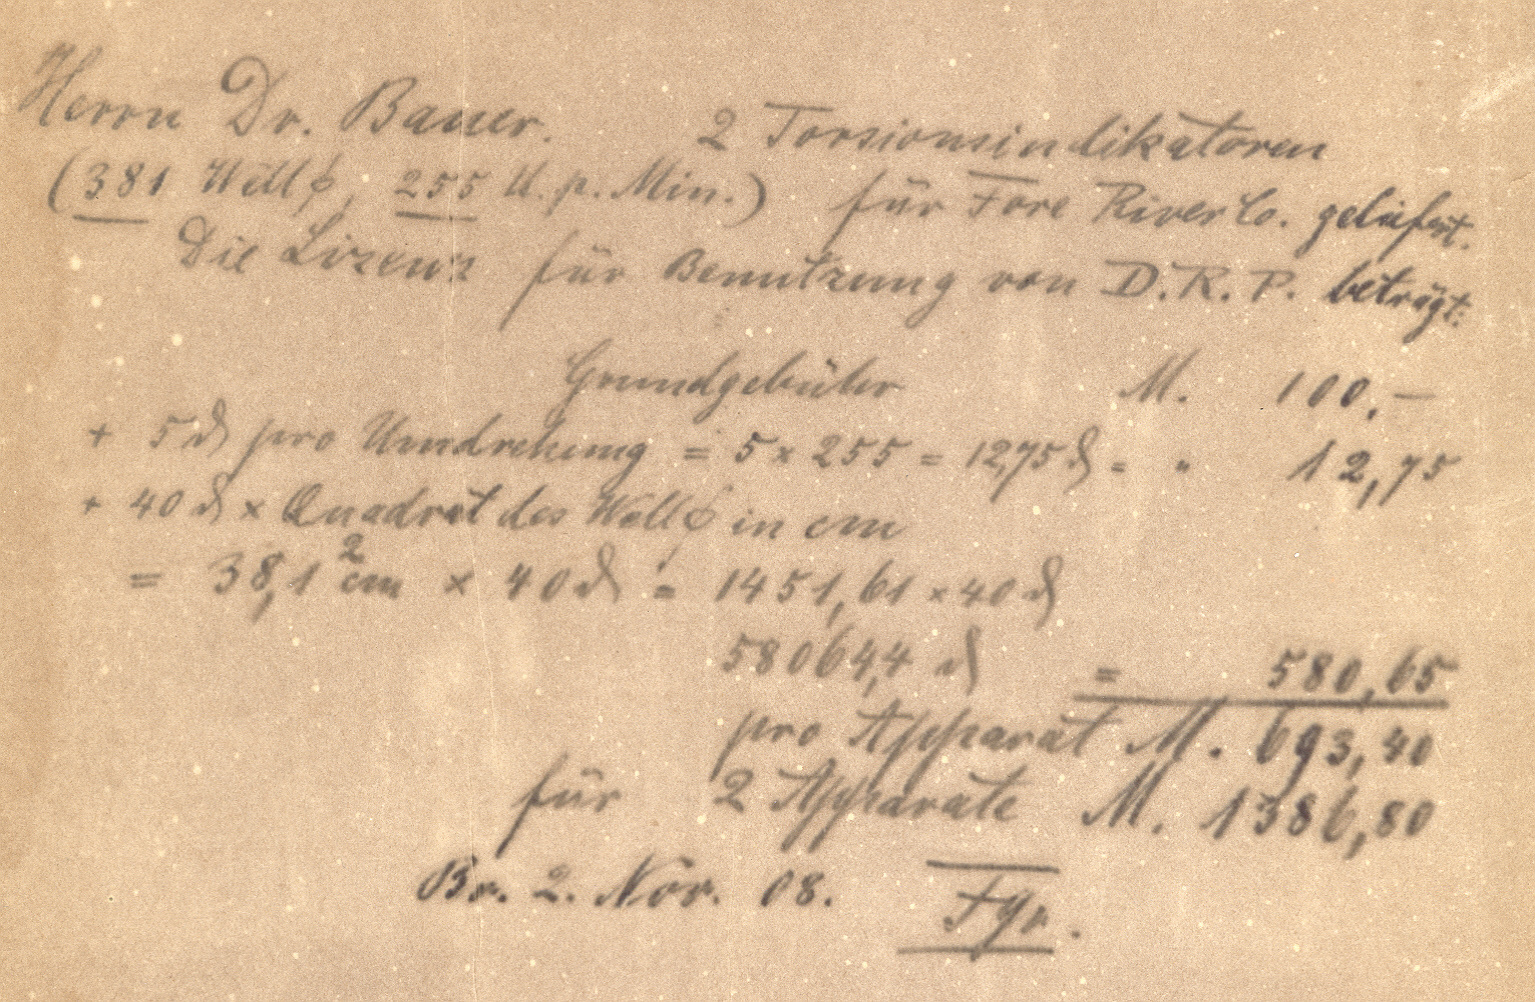 Herrn Dr. Bauer. 2 Torsionsindikatoren
(381 Well ϕ, 255 U. p. Min.) für Fore River Co. geliefert.
Die Lizenz für Benutzung von D. R. P. beträgt:
Grundgebühr M. 100.—
+ 5 ₰ pro Umdrehung = 5 × 255 = 1275 ₰ = " 12,75
+ 40 ₰ × Quadrat des Well ϕ in cm
= 38,1² cm × 40 ₰ = 1451,61 × 40 ₰
58064,4 ₰ = 580,65
pro Apparat M. 693,40
für 2 Apparate M. 1386,80
Br. 2. Nov. 08. Fgr.